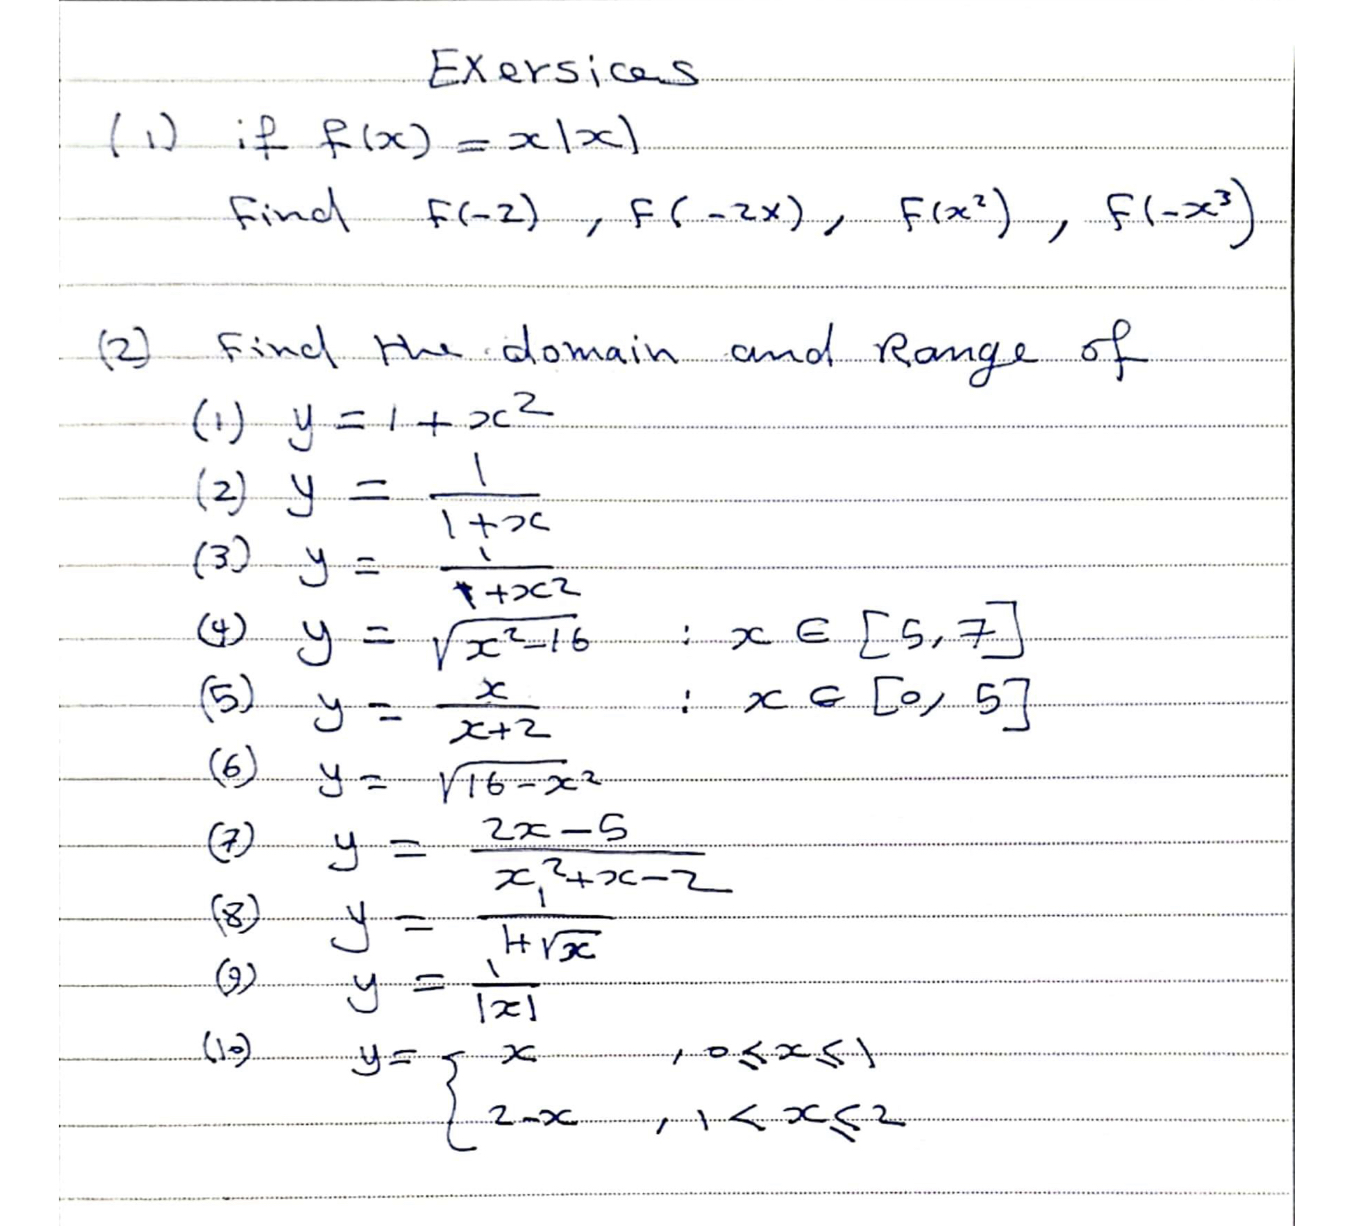 Exersices
(1) if f(x) = x|x|
Find F(-2) , F(-2x) , F(x²) , F(-x³)
(2) Find the domain and Range of
(1) y = 1 + x²
(2) y = 1/(1+x)
(3) y = 1/(1+x²)
(4) y = √(x²-16) : x ∈ [5,7]
(5) y = x/(x+2) : x ∈ [0, 5]
(6) y = √(16-x²)
(7) y = (2x-5)/(x²+x-2)
(8) y = 1/(1+√x)
(9) y = 1/|x|
(10) y = { x , 0 ≤ x ≤ 1
2-x , 1 < x ≤ 2